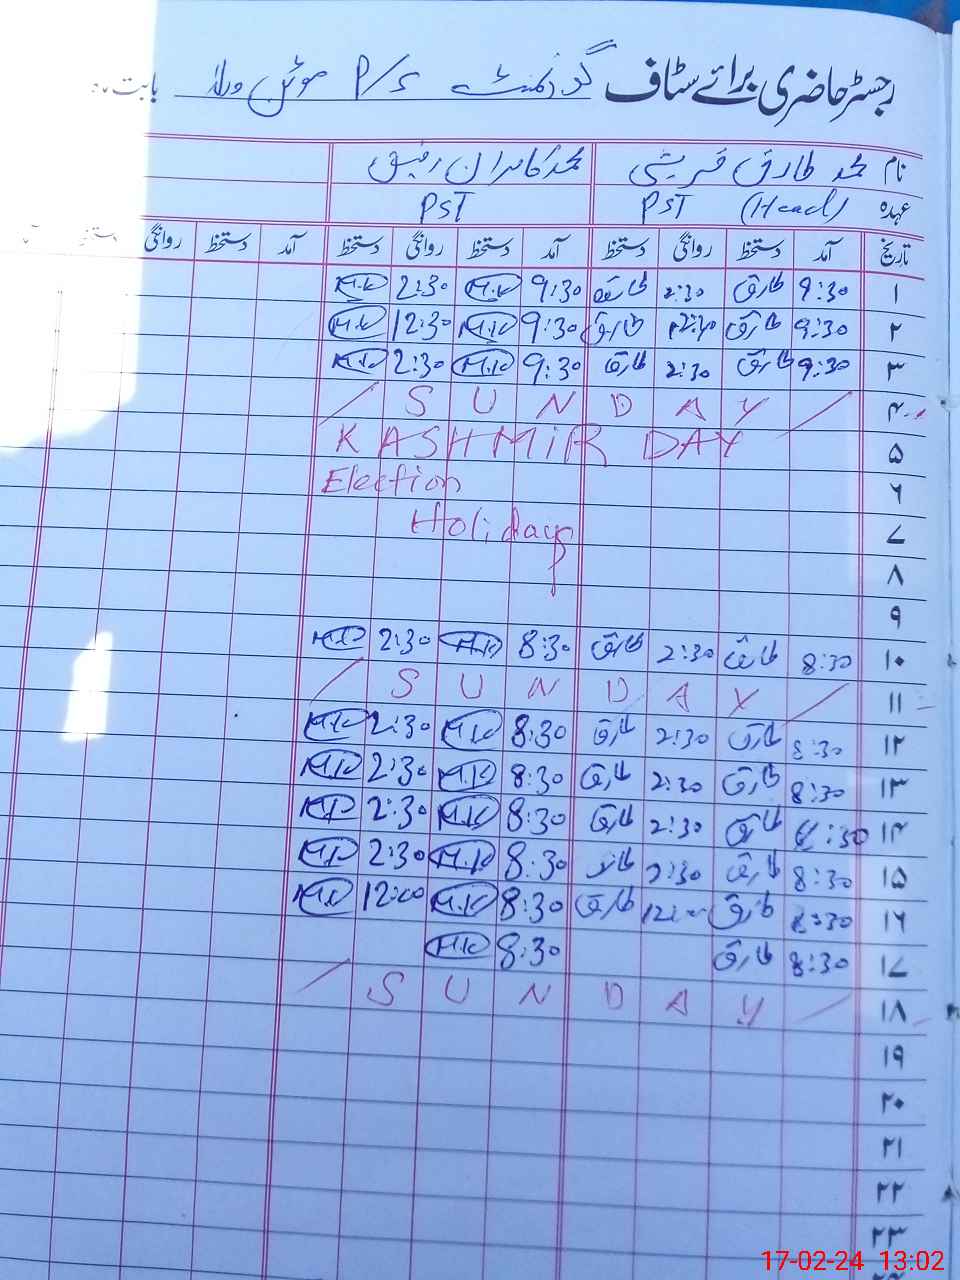 رجسٹر حاضری برائے سٹاف گورنمنٹ P/S بابت ماہ
نام محمد طارق قریشی محمد کامران رفیق
عہدہ PST (Head) PST
تاریخ آمد دستخط روانگی دستخط آمد دستخط روانگی دستخط آمد دستخط روانگی دستخط
۱ 9:30 طارق 2:30 طارق 9:30 M.K 2:30 M.K
۲ 9:30 طارق 12:30 طارق 9:30 M.K 12:30 M.K
۳ 9:30 طارق 2:30 طارق 9:30 M.K 2:30 M.K
۴ / SUNDAY /
۵ KASHMIR DAY
۶ Election
۷ Holidays
۸
۹
۱۰ 8:30 طارق 2:30 طارق 8:30 M.K 2:30 M.K
۱۱ / SUNDAY /
۱۲ 8:30 طارق 2:30 طارق 8:30 M.K 2:30 M.K
۱۳ 8:30 طارق 2:30 طارق 8:30 M.K 2:30 M.K
۱۴ 8:30 طارق 2:30 طارق 8:30 M.K 2:30 M.K
۱۵ 8:30 طارق 2:30 طارق 8:30 M.K 2:30 M.K
۱۶ 8:30 طارق 12:00 طارق 8:30 M.K 12:00 M.K
۱۷ 8:30 طارق 8:30 M.K
۱۸ / SUNDAY /
۱۹
۲۰
۲۱
۲۲
۲۳
17-02-24 13:02